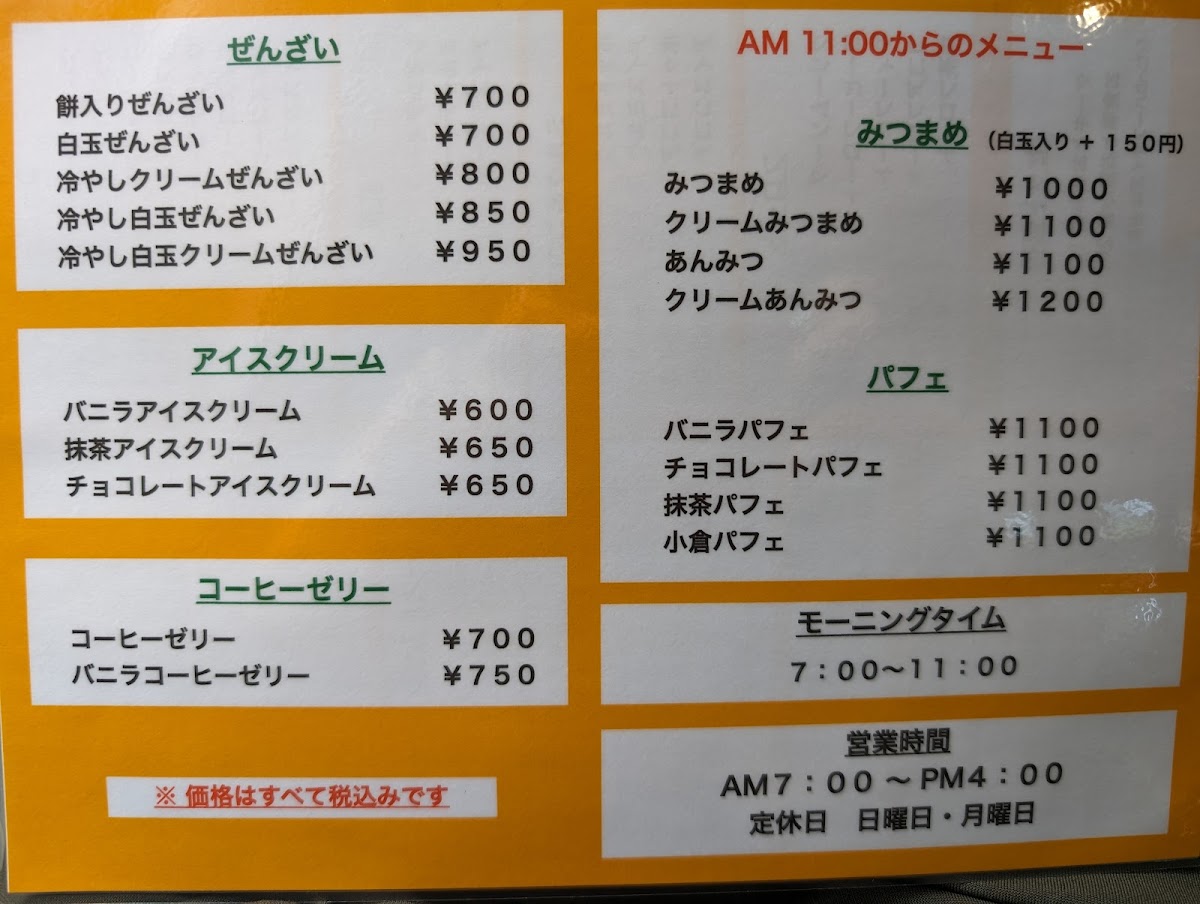 ぜんざい
餅入りぜんざい ¥700
白玉ぜんざい ¥700
冷やしクリームぜんざい ¥800
冷やし白玉ぜんざい ¥850
冷やし白玉クリームぜんざい ¥950
アイスクリーム
バニラアイスクリーム ¥600
抹茶アイスクリーム ¥650
チョコレートアイスクリーム ¥650
コーヒーゼリー
コーヒーゼリー ¥700
バニラコーヒーゼリー ¥750
※ 価格はすべて税込みです
AM 11:00からのメニュー
みつまめ (白玉入り + 150円)
みつまめ ¥1000
クリームみつまめ ¥1100
あんみつ ¥1100
クリームあんみつ ¥1200
パフェ
バニラパフェ ¥1100
チョコレートパフェ ¥1100
抹茶パフェ ¥1100
小倉パフェ ¥1100
モーニングタイム
7：00〜11：00
営業時間
AM7：00 〜 PM4：00
定休日　日曜日・月曜日